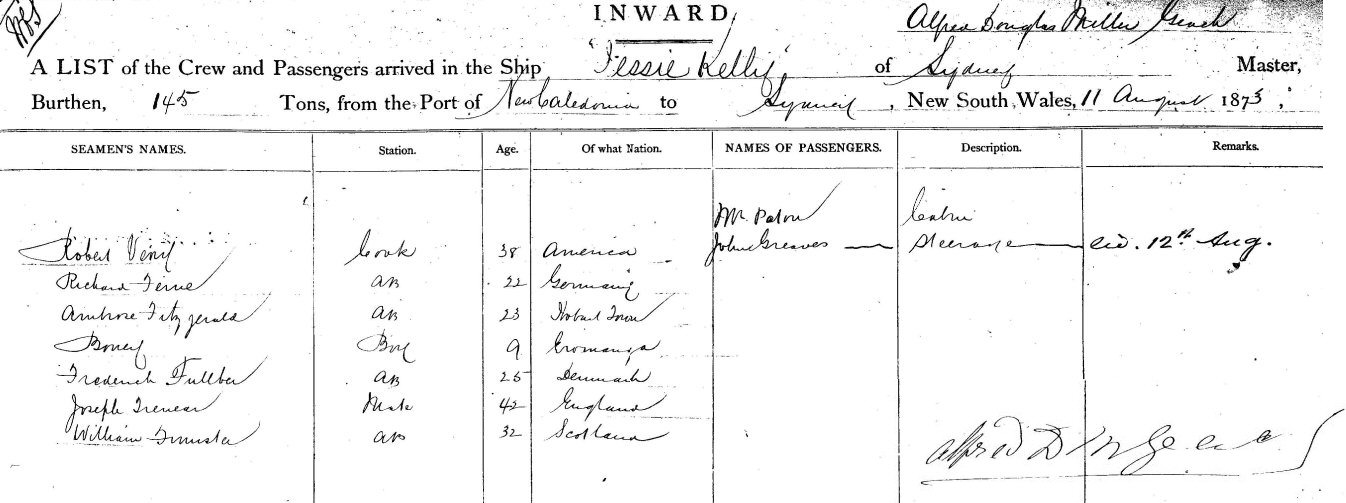 INWARD,
Alfred Douglas Miller Geach
A LIST of the Crew and Passengers arrived in the Ship "Jessie Kelly" of Sydney Master,
Burthen, 145 Tons, from the Port of New Caledonia to Sydney, New South Wales, 11 August 1873,
SEAMEN'S NAMES. Station. Age. Of what Nation. NAMES OF PASSENGERS. Description. Remarks.
Mr. Paton Cabin
Robert Cook 38 America John Greaves Steerage 12th Aug.
Richard AB 22 Germany
Ambrose Fitzgerald AB 23 Hobart Town
Boney Boy 9 Eromanga
Frederick AB 25 Denmark
Joseph Mate 42 England
William AB 32 Scotland
Alfred D M Geach